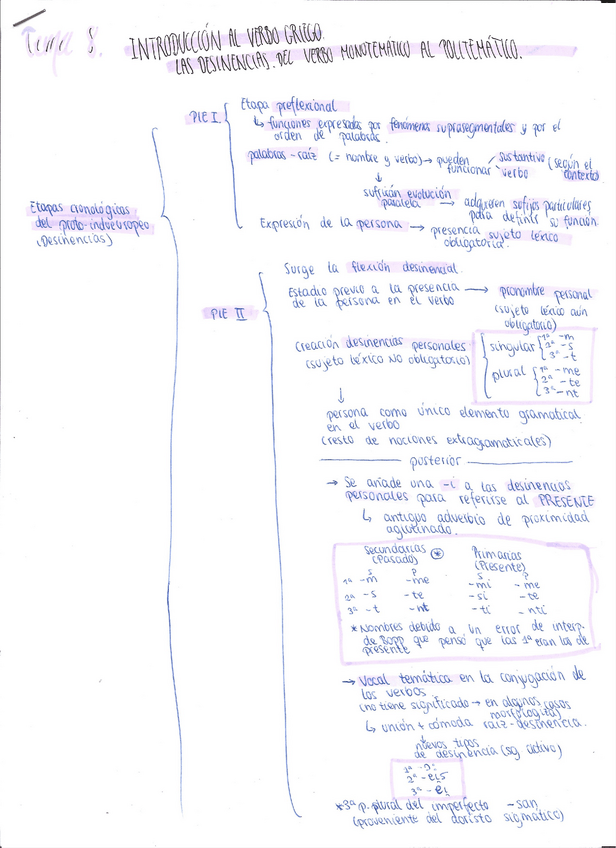 Tema 8
INTRODUCCIÓN AL VERBO GRIEGO.
LAS DESINENCIAS. DEL VERBO MONOTEMÁTICO AL POLITEMÁTICO.
Etapas cronológicas
del proto-indoeuropeo
(Desinencias)
PIE I
Etapa preflexional
↳ funciones expresadas por fenómenos suprasegmentales y por el
orden de palabras.
palabras-raíz (= nombre y verbo) → pueden
funcionar
sustantivo
verbo
(según el
contexto)
↓
sufrirán evolución
paralela → adquieren sufijos particulares
para definir su función.
Expresión de la persona → presencia sujeto léxico
obligatoria.
PIE II
Surge la flexión desinencial.
Estadio previo a la presencia → pronombre personal
de la persona en el verbo
(sujeto léxico aún
obligatorio)
Creación desinencias personales
(sujeto léxico NO obligatorio)
singular
1ª -m
2ª -s
3ª -t
plural
1ª -me
2ª -te
3ª -nt
↓
persona como único elemento gramatical
en el verbo
(resto de nociones extragramaticales)
posterior
→ Se añade una -i a las desinencias
personales para referirse al PRESENTE
↳ antiguo adverbio de proximidad
aglutinado.
Secundarias * Primarias
(Pasado) (Presente)
S P S P
1ª -m -me -mi -me
2ª -s -te -si -te
3ª -t -nt -ti -nti
*Nombres debido a un error de interp.
de Bopp que pensó que las 1ª eran las de
presente
→ Vocal temática en la conjugación de
los verbos.
(no tiene significado → en algunos casos
morfología)
↳ unión + cómoda raíz-desinencia.
↓
nuevos tipos
de desinencia (sg activo)
2ª -eis
3ª -ei
*3ª p. plural del imperfecto -san
(proveniente del aoristo sigmático)